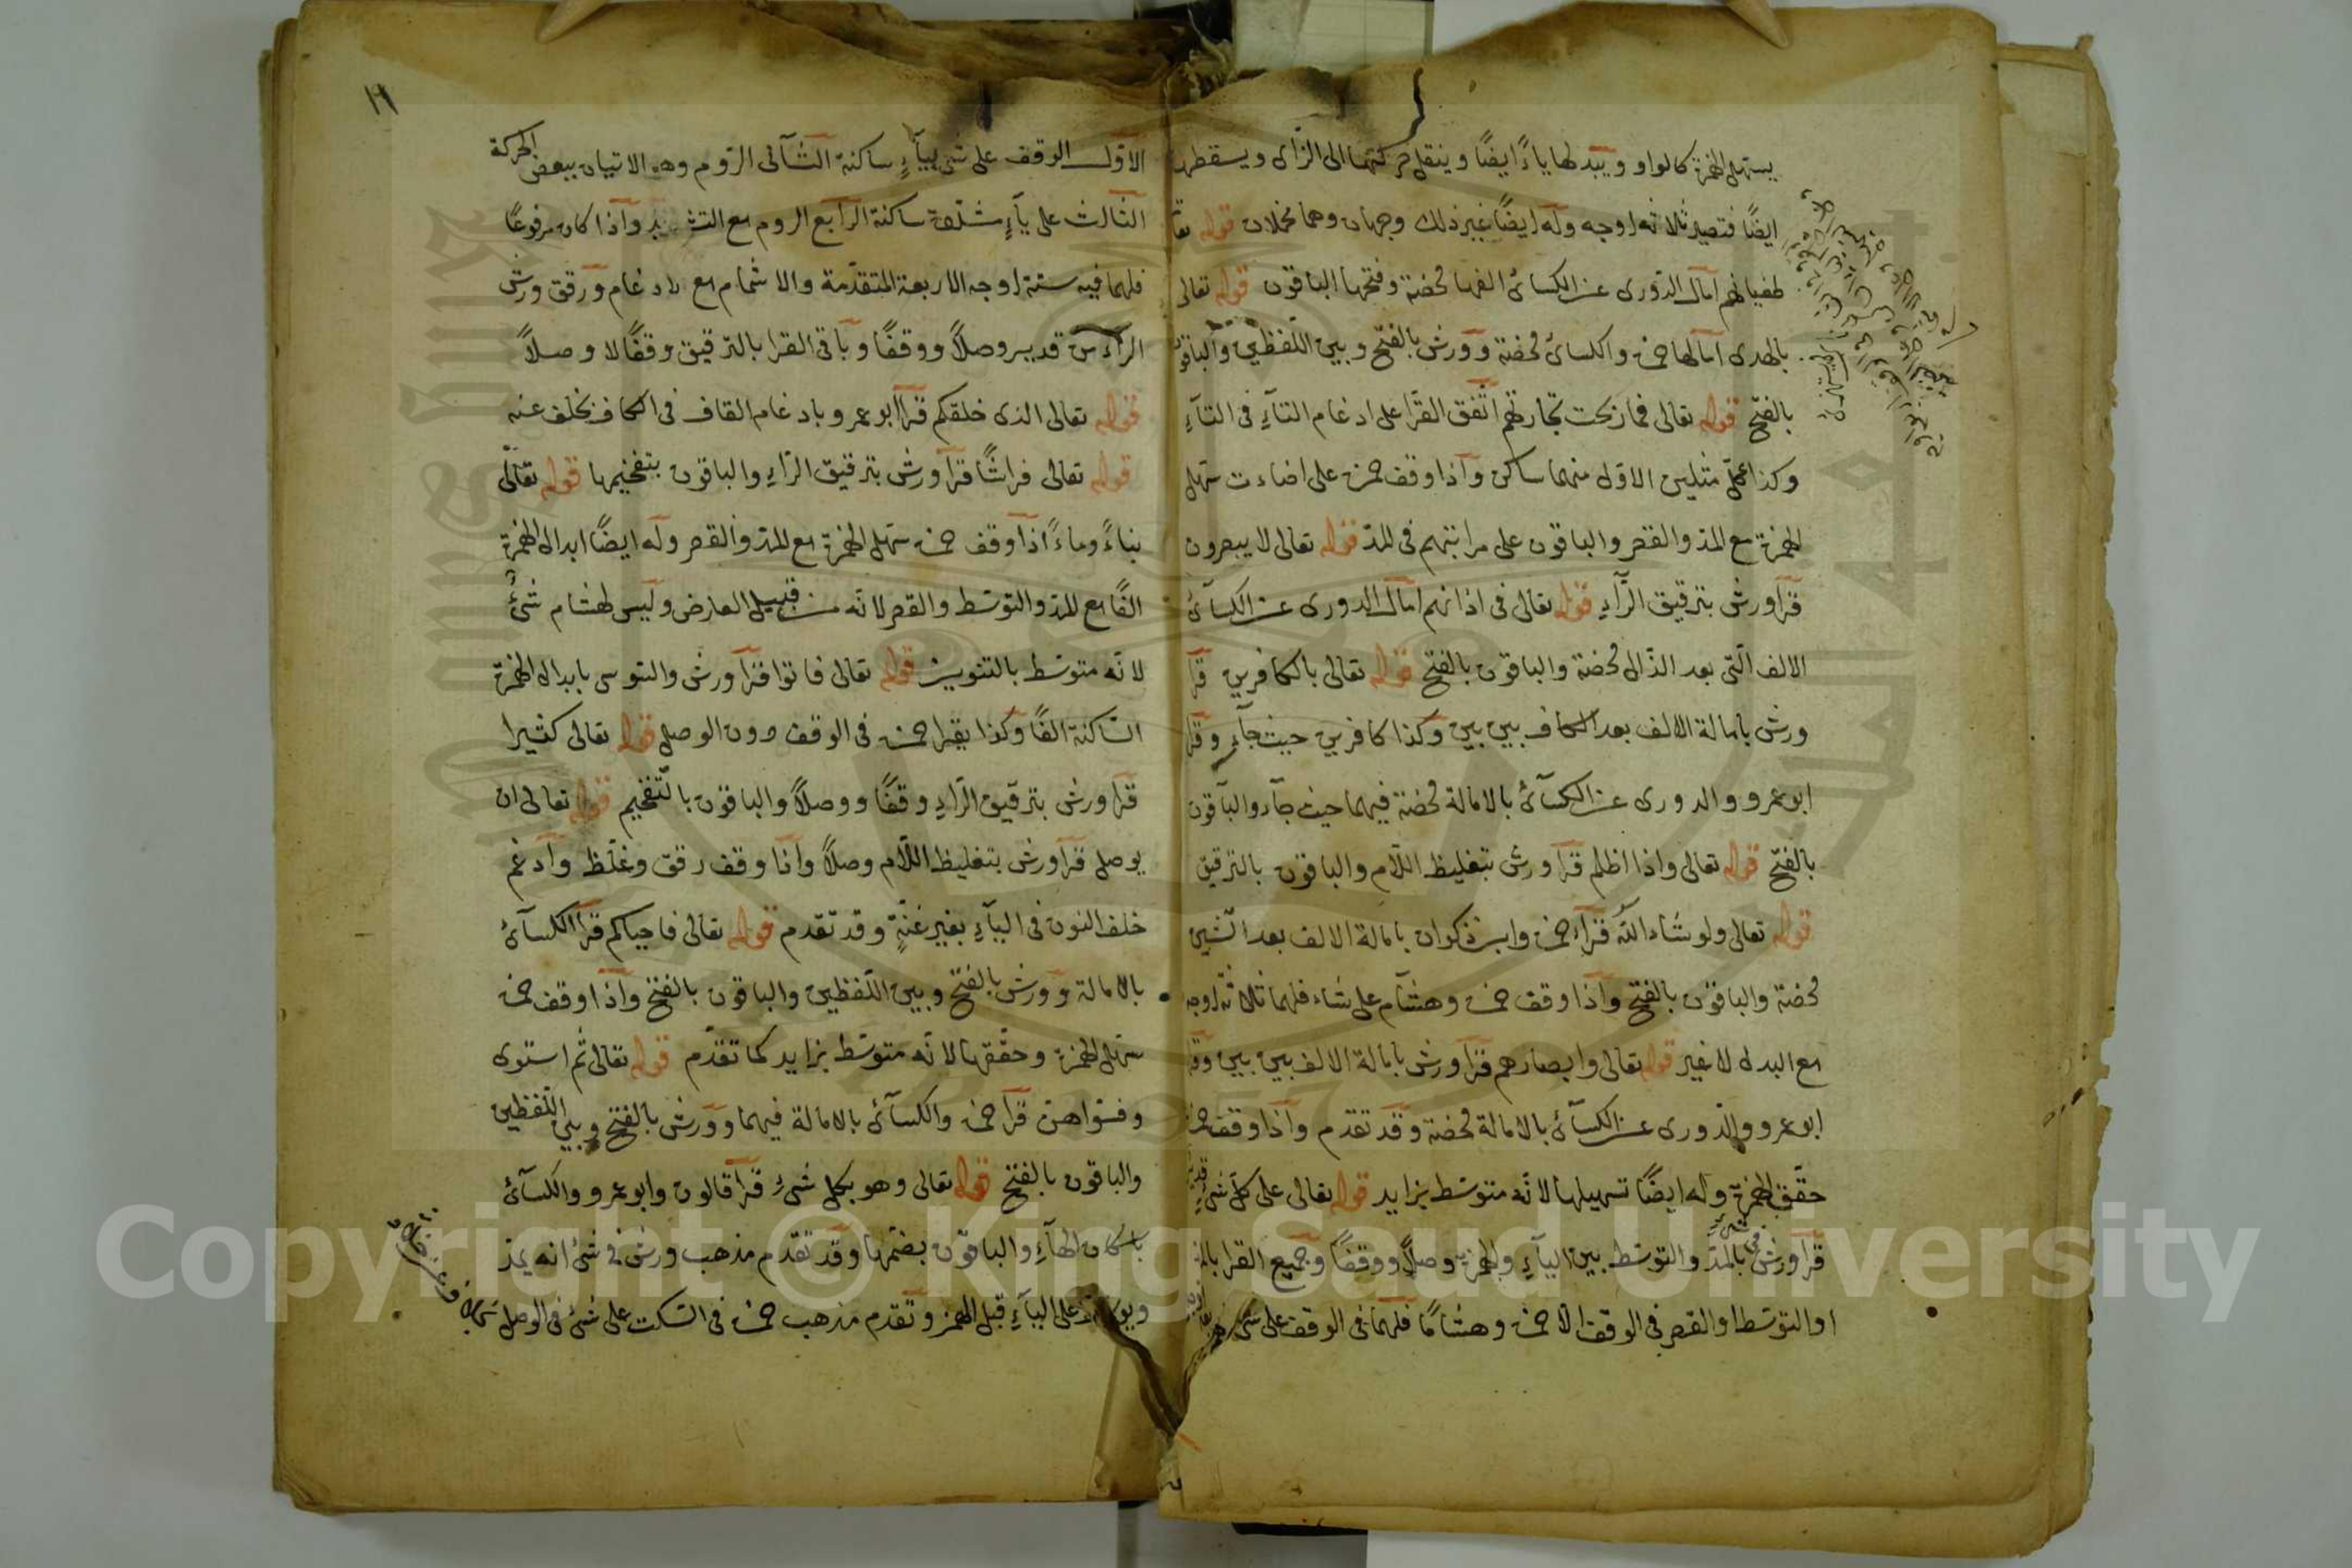 يسهل الهمزة كالواو ويبدلها ياءً ايضًا وينقل حركتها الى الزاى ويسقطها
ايضًا فتصير ثلاثة اوجه وله ايضًا غير ذلك وجهان وهما مخملان قوله تعا
طغيانهم امال الدورى عن الكسائ الفها محضة وفتحها الباقون قوله تعالى
بالهدى امالها حمزة والكسائ محضة وورش بالفتح وبين اللفظين والباقون
بالفتح قوله تعالى فما ربحت تجارتهم اتفق القرا على ادغام التآءِ فى التآءِ
وكذا كل مثلين الاول منهما ساكن واذا وقف حمزة على اضاءت سهل
الهمزة مع المد والقصر والباقون على مراتبهم فى المد قوله تعالى لا يبصرون
قرأ ورش بترقيق الرآءِ قوله تعالى فى اذانهم امال الدورى عن الكسآئ
الالف التى بعد الذال محضة والباقون بالفتح قوله تعالى بالكافرين قرأ
ورش بامالة الالف بعد الكاف بين بين وكذا كافرين حيث جآء وقرأ
ابو عمرو والدورى عن الكسآئ بالامالة محضة فيهما حيث جآء والباقون
بالفتح قوله تعالى واذا اظلم قرأ ورش بتغليظ اللام والباقون بالترقيق
قوله تعالى ولو شاء الله قرأ حمزة وابن ذكوان بامالة الالف بعد الشين
محضة والباقون بالفتح واذا وقف حمزة وهشام على شاء فلهما ثلاثة اوجه
مع البدل لا غير قوله تعالى وابصارهم قرأ ورش بامالة الالف بين بين وقرأ
ابو عمرو والدورى عن الكسآئ بالامالة محضة وقد تقدم واذا وقف حمزة
حقق الهمزة وله ايضًا تسهيلها لانه متوسط بزايد قوله تعالى على كل شىءٍ قدير
قرأ ورش بالمد والتوسط بين اليآءِ والهمزة وصلاً ووقفًا وجميع القرا بالمد
او التوسط او القصر فى الوقف الا حمزة وهشامًا فلهما فى الوقف على شىء
الاول الوقف على شى بيآءٍ ساكنة الثآنى الروم وهو الاتيان ببعض الحركة
الثالث على يآءٍ مشددة ساكنة الرابع الروم مع التشديد واذا كان مرفوعًا
فلهما فيه ستة اوجه الاربعة المتقدمة والاشمام مع الادغام ورقق ورش
الرآء من قدير وصلاً ووقفًا وباقى القرا بالترقيق وقفًا لا وصلاً
قوله تعالى الذى خلقكم قرأ ابو عمرو بادغام القاف فى الكاف بخلف عنه
قوله تعالى فراشًا قرأ ورش بترقيق الراءِ والباقون بتفخيمها قوله تعالى
بناءً وماءً اذا وقف حمزة سهل الهمزة مع المد والقصر وله ايضًا ابدال الهمزة
الفًا مع المد والتوسط والقصر لانه من قبيل العارض وليس لهشام شئٌ
لانه متوسط بالتنوين قوله تعالى فاتوا قرأ ورش والسوسى بابدال الهمزة
الساكنة الفًا وكذا يقرأ حمزة فى الوقف دون الوصل قوله تعالى كثيرا
قرأ ورش بترقيق الراءِ وقفًا ووصلاً والباقون بالتفخيم قوله تعالى ان
يوصل قرأ ورش بتغليظ اللام وصلاً واذا وقف رقق وغلظ وادغم
خلف النون فى اليآءِ بغير غنةٍ وقد تقدم قوله تعالى فاحياكم قرأ الكسآئ
بالامالة وورش بالفتح وبين اللفظين والباقون بالفتح واذا وقف حمزة
سهل الهمزة وحققها لانه متوسط بزايد كما تقدم قوله تعالى ثم استوى
وفسواهن قرأ حمزة والكسآئ بالامالة فيهما وورش بالفتح وبين اللفظين
والباقون بالفتح قوله تعالى وهو بكل شىءٍ قرأ قالون وابو عمرو والكسآئ
باسكان الهآءِ والباقون بضمها وقد تقدم مذهب ورش فى شئ انه يمد
على اليآءِ قبل الهمز وتقدم مذهب حمزة فى السكت على شئ فى الوصل
Copyright © King Saud University